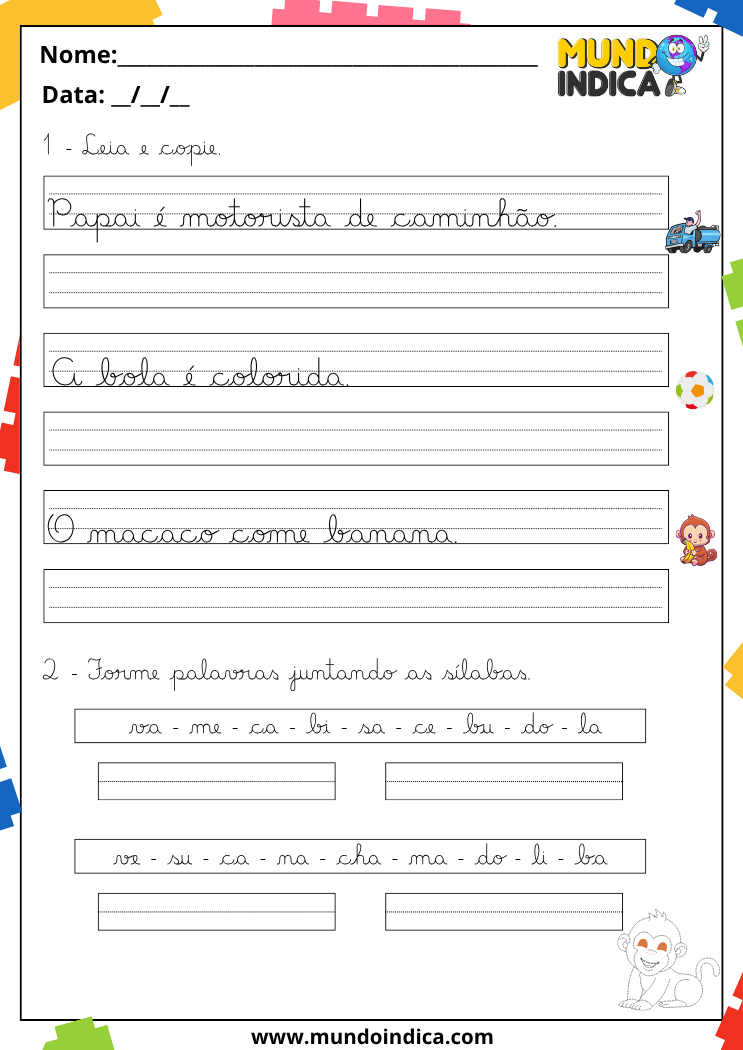 Nome:___________________________________
MUNDO
INDICA
Data: __/__/__
1 - Leia e copie.
Papai é motorista de caminhão.
A bola é colorida.
O macaco come banana.
2 - Forme palavras juntando as sílabas.
va - me - ca - bi - sa - ce - bu - do - la
ve - su - ca - na - cha - ma - do - li - ba
www.mundoindica.com